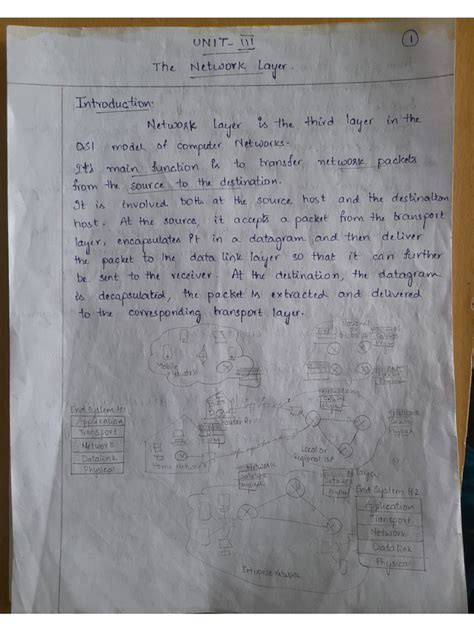 UNIT-III
1
The Network Layer.
Introduction:
Network layer is the third layer in the
OSI model of computer Networks.
It's main function is to transfer network packets
from the source to the destination.
It is involved both at the source host and the destination
host. At the source, it accepts a packet from the transport
layer, encapsulates it in a datagram and then deliver
the packet to the data link layer so that it can further
be sent to the receiver. At the destination, the datagram
is decapsulated, the packet is extracted and delivered
to the corresponding transport layer.
Mobile
Network
National
End System H1
Application
Transport
Network
Datalink
Physical
Router R1
Home Network
Local or
Regional ISP
Network
End System H2
Application
Transport
Network
Datalink
Physical
Enterprise Network